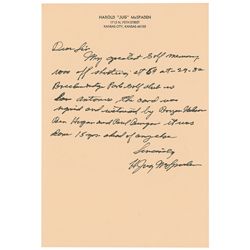 HAROLD "JUG" McSPADEN
KANSAS CITY, KANSAS
Dear Sir,
My greatest Golf memory
was off shooting at 59 at 29-30
Breckenridge Park Golf that is
San Antonio the card was
signed and witnessed by Byron Nelson
Ben Hogan and Paul Runyan it was
done 15 yrs ahead of anyone
Sincerely
H Jug McSpaden